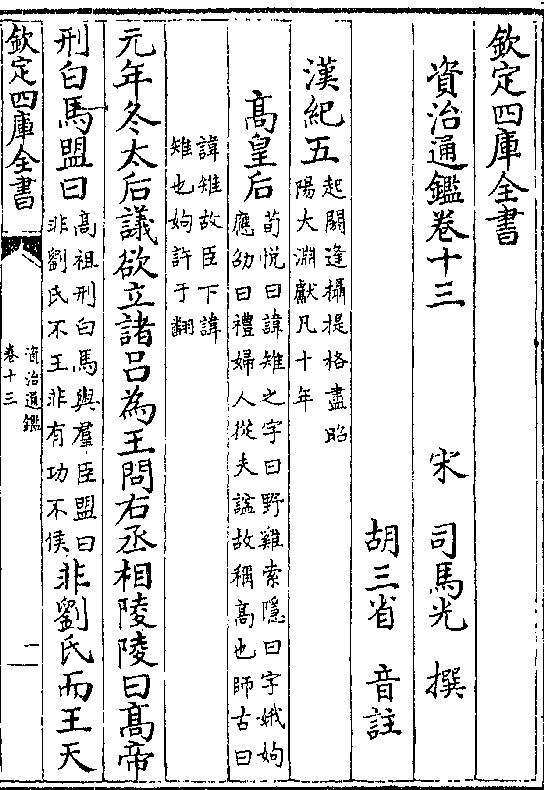 欽定四庫全書
資治通鑑卷十三
宋 司馬光 撰
胡三省 音註
漢紀五
起閼逢攝提格盡昭
陽大淵獻凡十年
高皇后
荀悅曰諱雉之字曰野雞索隱曰字娥姁
應劭曰禮婦人從夫諡故稱高也師古曰
諱雉故臣下諱
雉也姁許于翻
元年冬太后議欲立諸呂為王問右丞相陵陵曰高帝
刑白馬盟曰
高祖刑白馬與羣臣盟曰
非劉氏不王非有功不侯
非劉氏而王天
欽定四庫全書
資治通鑑
卷十三
一